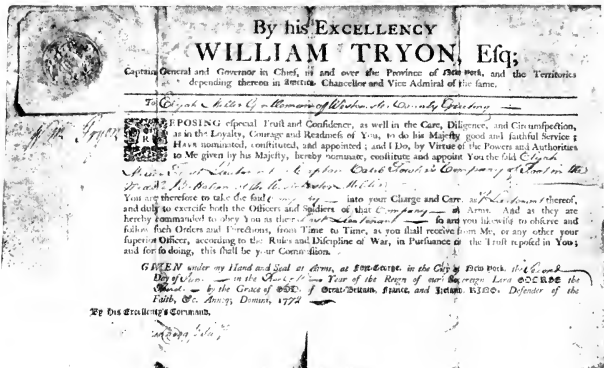 By his EXCELLENCY
WILLIAM TRYON, Esq;
Captain General and Governor in Chief, in and over the Province of New York, and the Territories
depending thereon in America, Chancellor and Vice Admiral of the same.
To Elijah Miller Gentleman of Westchester County Greeting
REPOSING especial Trust and Confidence, as well in the Care, Diligence, and Circumspection,
as in the Loyalty, Courage and Readiness of You, to do his Majesty good and faithful Service;
HAVE nominated, constituted, and appointed; and I Do, by Virtue of the Powers and Authorities
to Me given by his Majesty, hereby nominate, constitute and appoint You the said Elijah
Miller First Lieutenant Captain Company of Foot in the
You are therefore to take the said Company into your Charge and Care, as Lieutenant thereof,
and duly to exercise both the Officers and Soldiers of that Company in Arms. And as they are
hereby commanded to obey You as their First Lieutenant so are you likewise to observe and
follow such Orders and Directions, from Time to Time, as you shall receive from Me, or any other your
superior Officer, according to the Rules and Discipline of War, in Pursuance of the Trust reposed in You;
and for so doing, this shall be your Commission.
GIVEN under my Hand and Seal at Arms, at Fort-George, in the City of New York, the Second
Day of in the Year of the Reign of our Sovereign Lord GEORGE the
Third by the Grace of GOD, of Great-Britain, France, and Ireland, KING, Defender of the
Faith, &c. Annoq; Domini, 1772
By His Excellency's Command,